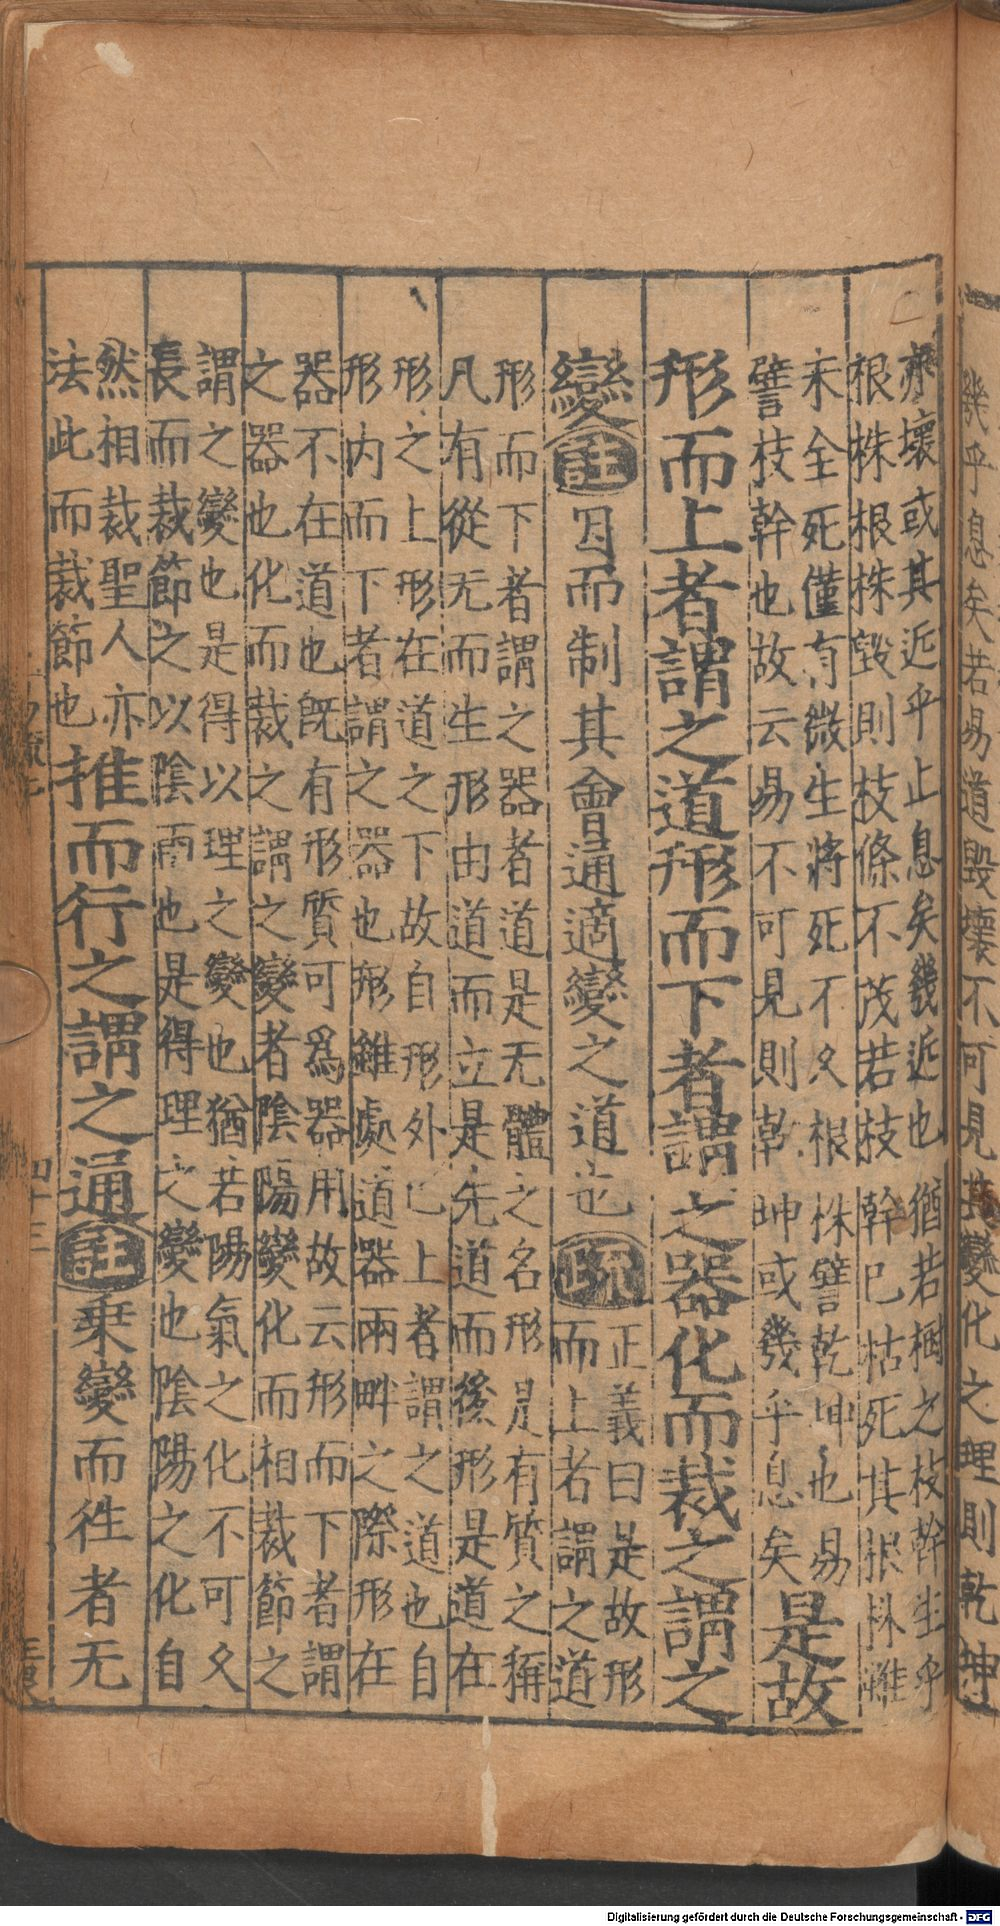 幾乎息矣若易道毀壞不可見其變化之理則乾坤
亦壞或其近乎止息矣幾近也猶若樹之枝幹生乎
根株根株毀則枝條不茂若枝幹已枯死其根株雖
未全死僅有微生將死不久根株譬乾坤也易
譬枝幹也故云易不可見則乾坤或幾乎息矣
是故
形而上者謂之道形而下者謂之器化而裁之謂之
變註因而制其會通適變之道也疏
正義曰是故形
而上者謂之道
形而下者謂之器者道是无體之名形是有質之稱
凡有從无而生形由道而立是先道而後形是道在
形之上形在道之下故自形外已上者謂之道也自
形内而下者謂之器也形雖處道器兩畔之際形在
器不在道也旣有形質可爲器用故云形而下者謂
之器也化而裁之謂之變者陰陽變化而相裁節之
謂之變也是得以理之變也猶若陽氣之化不可久
長而裁節之以陰雨也是得理之變也陰陽之化自
然相裁聖人亦
法此而裁節也
推而行之謂之通註乗變而徃者无
四十三
Digitalisierung gefördert durch die Deutsche Forschungsgemeinschaft - DFG